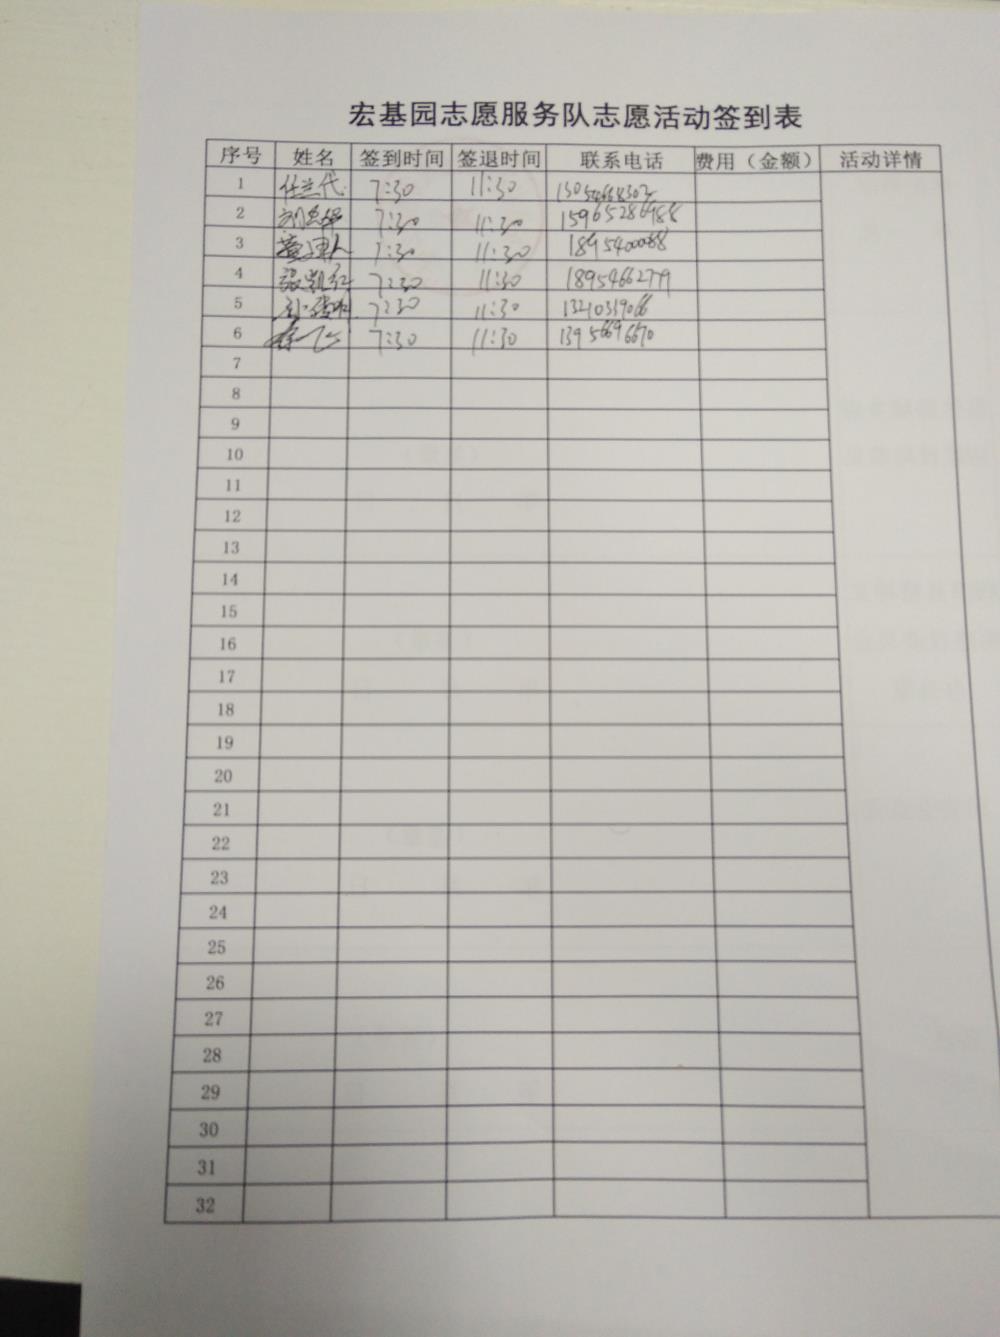 宏基园志愿服务队志愿活动签到表
序号 姓名 签到时间 签退时间 联系电话 费用（金额） 活动详情
1 任兰代 7:30 11:30
2 7:30 11:30 15965286988
3 7:30 11:30 1895400088
4 张凯红 7:30 11:30 18954662779
5 7:30 11:30 13210319066
6 7:30 11:30 13956696670
7
8
9
10
11
12
13
14
15
16
17
18
19
20
21
22
23
24
25
26
27
28
29
30
31
32